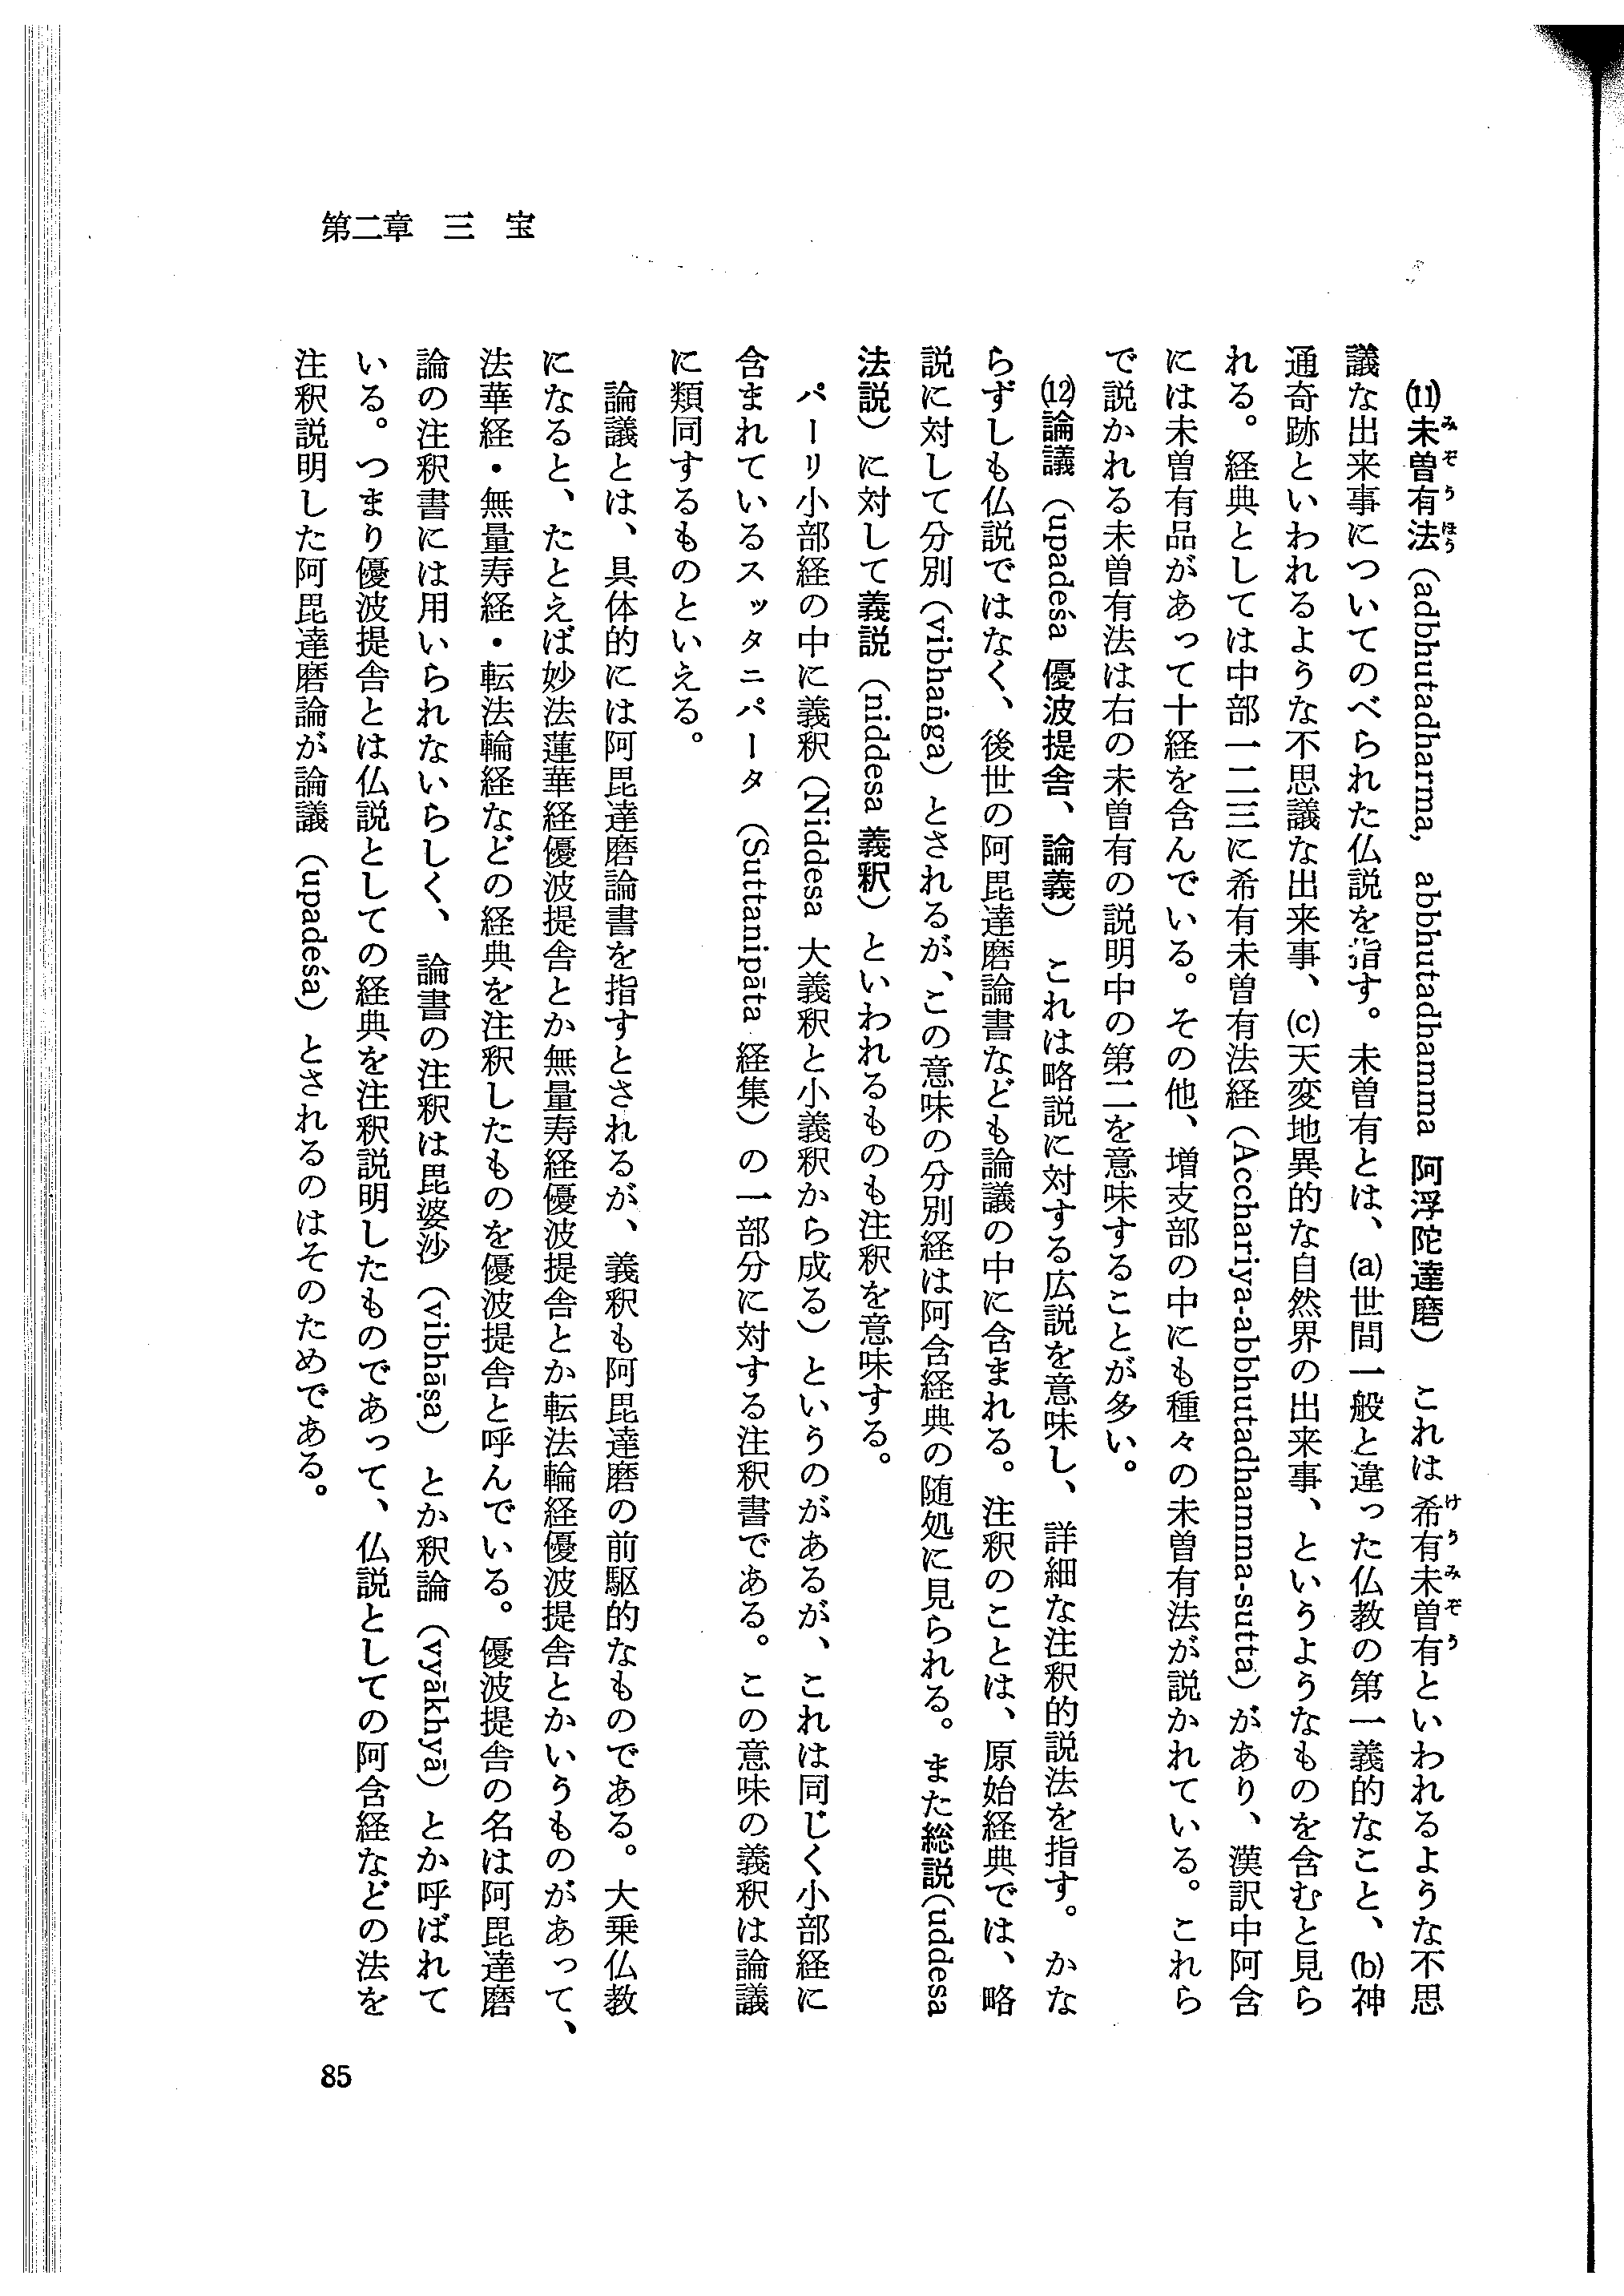 第二章　三　宝
⑾未曽有法（adbhutadharma, abbhutadhamma 阿浮陀達磨）　これは希有未曽有といわれるような不思
議な出来事についてのべられた仏説を指す。未曽有とは、(a)世間一般と違った仏教の第一義的なこと、(b)神
通奇跡といわれるような不思議な出来事、(c)天変地異的な自然界の出来事、というようなものを含むと見ら
れる。経典としては中部一二三に希有未曽有法経（Acchariya-abbhutadhamma-sutta）があり、漢訳中阿含
には未曽有品があって十経を含んでいる。その他、増支部の中にも種々の未曽有法が説かれている。これら
で説かれる未曽有法は右の未曽有の説明中の第二を意味することが多い。
⑿論議（upadeśa 優波提舎、論義）　これは略説に対する広説を意味し、詳細な注釈的説法を指す。かな
らずしも仏説ではなく、後世の阿毘達磨論書なども論議の中に含まれる。注釈のことは、原始経典では、略
説に対して分別（vibhaṅga）とされるが、この意味の分別経は阿含経典の随処に見られる。また総説（uddesa
法説）に対して義説（niddesa 義釈）といわれるものも注釈を意味する。
パーリ小部経の中に義釈（Niddesa 大義釈と小義釈から成る）というのがあるが、これは同じく小部経に
含まれているスッタニパータ（Suttanipāta 経集）の一部分に対する注釈書である。この意味の義釈は論議
に類同するものといえる。
論議とは、具体的には阿毘達磨論書を指すとされるが、義釈も阿毘達磨の前駆的なものである。大乗仏教
になると、たとえば妙法蓮華経優波提舎とか無量寿経優波提舎とか転法輪経優波提舎とかいうものがあって、
法華経・無量寿経・転法輪経などの経典を注釈したものを優波提舎と呼んでいる。優波提舎の名は阿毘達磨
論の注釈書には用いられないらしく、論書の注釈は毘婆沙（vibhāṣa）とか釈論（vyākhyā）とか呼ばれて
いる。つまり優波提舎とは仏説としての経典を注釈説明したものであって、仏説としての阿含経などの法を
注釈説明した阿毘達磨論が論議（upadeśa）とされるのはそのためである。
85